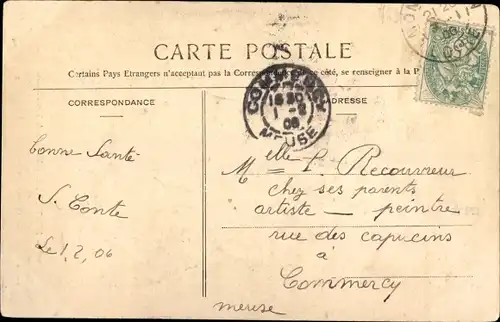 CARTE POSTALE
Certains Pays Etrangers n'acceptant pas la Correspondance de ce côté, se renseigner à la P
CORRESPONDANCE
ADRESSE
COMMERCY
18 30
1 - 2
06
MEUSE
Bonne Santé
S. Conte
Le 1, 2, 06
Melle P. Recouvreur
chez ses parents
artiste — peintre
rue des capucins
à
Commercy
meuse